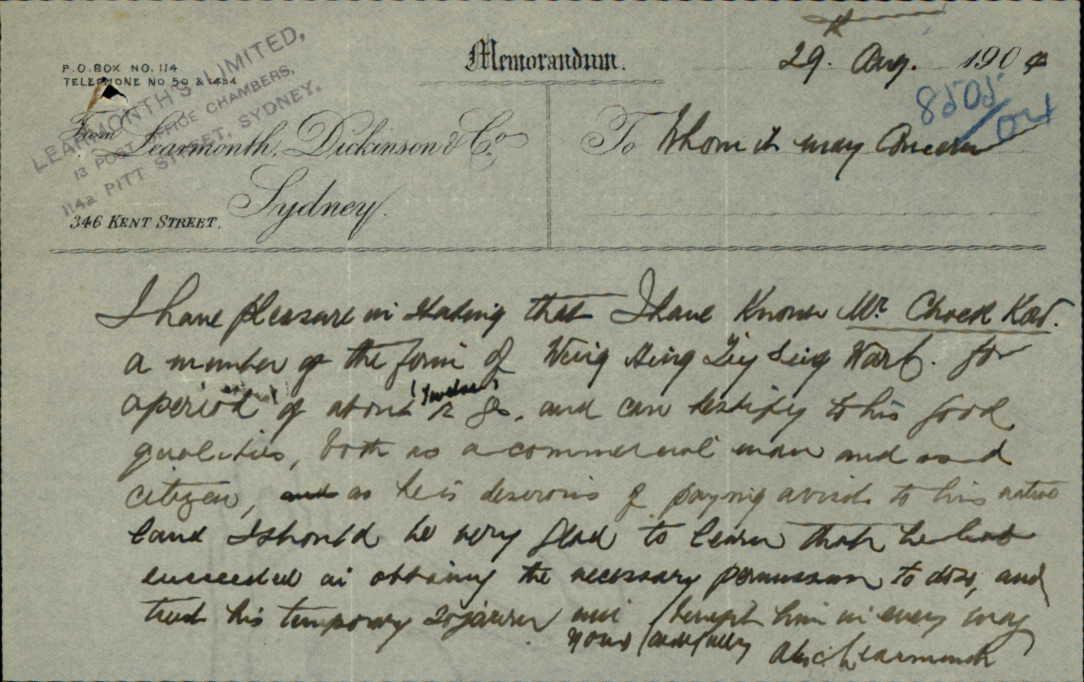 P.O. BOX NO. 114
TELEPHONE NO 50 & 1434
Memorandum.
29. Aug. 1904
8505/04
LEARMONTH'S LIMITED,
13 POST OFFICE CHAMBERS,
114a PITT STREET, SYDNEY.
From Learmonth, Dickinson & Co.
Sydney.
346 KENT STREET.
To Whom it may Concern
I have pleasure in stating that I have known Mr. Chock Kow.
a member of the firm of Wing Hing Jey Sing Wart. for
a period of about (Twelve) 12 yrs, and can testify to his good
qualities, both as a commercial man and as a
citizen, and as he is desirous of paying a visit to his native
land I should be very glad to learn that he had
succeeded in obtaining the necessary permission to do so, and
trust his temporary sojourn will benefit him in every way
Yours faithfully
Alex Learmonth